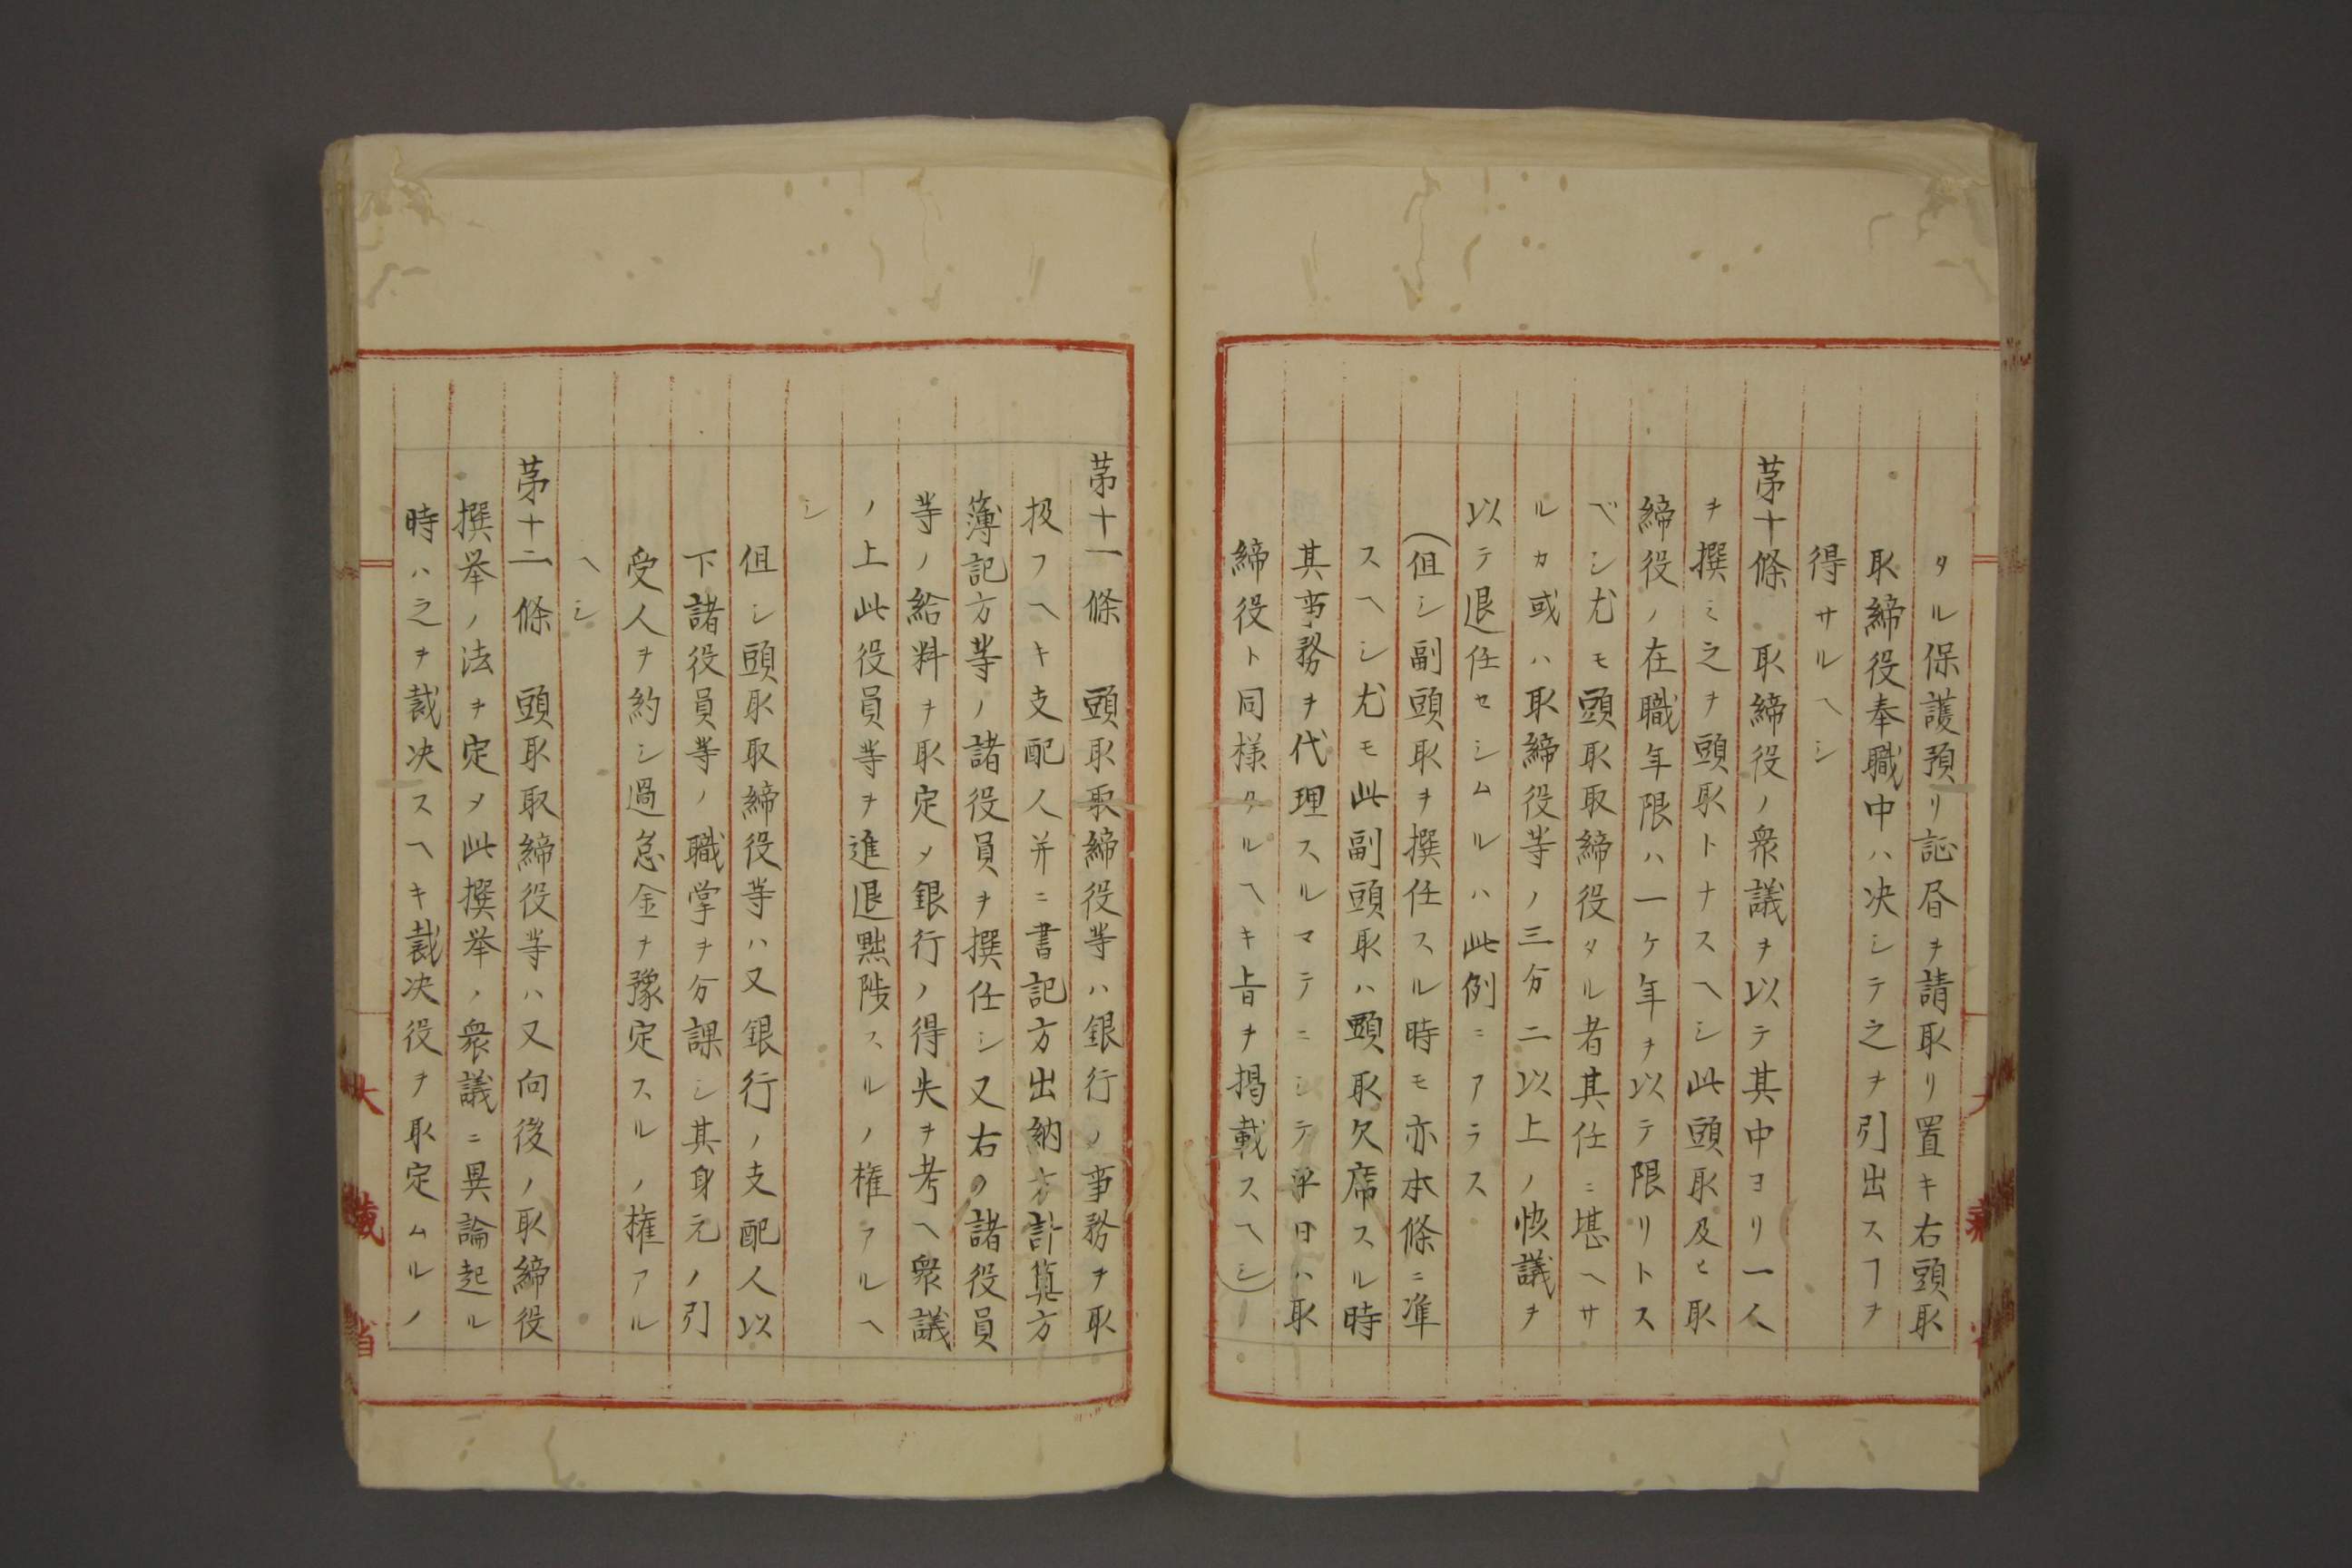 タル保護預リ証昏ヲ請取リ置キ右頭取
取締役奉職中ハ决シテ之ヲ引出スヿヲ
得サルヘシ
苐十條　取締役ノ衆議ヲ以テ其中ヨリ一人
ヲ撰ミ之ヲ頭取トナスヘシ此頭取及ヒ取
締役ノ在職年限ハ一ケ年ヲ以テ限リトス
ベシ尤モ頭取取締役タル者其任ニ堪ヘサ
ルカ或ハ取締役等ノ三分二以上ノ恊議ヲ
以テ退任セシムルハ此例ニアラス
(但シ副頭取ヲ撰任スル時モ亦本條ニ準
スヘシ尤モ此副頭取ハ頭取欠席スル時
其事務ヲ代理スルマテニシテ平日ハ取
締役ト同様タルヘキ旨ヲ掲載スヘシ)
苐十一條　頭取取締役等ハ銀行ノ事務ヲ取
扱フヘキ支配人并ニ書記方出納方計算方
簿記方等ノ諸役員ヲ撰任シ又右の諸役員
等ノ給料ヲ取定メ銀行ノ得失ヲ考ヘ衆議
ノ上此役員等ヲ進退黜陟スルノ権アルヘ
シ
但シ頭取取締役等ハ又銀行ノ支配人以
下諸役員等ノ職掌ヲ分課シ其身元ノ引
受人ヲ約シ過怠金ヲ豫定スルノ権アル
ヘシ
苐十二條　頭取取締役等ハ又向後ノ取締役
撰挙ノ法ヲ定メ此撰挙ノ衆議ニ異論起ル
時ハ之ヲ裁决スヘキ裁决役ヲ取定ムルノ
大藏省